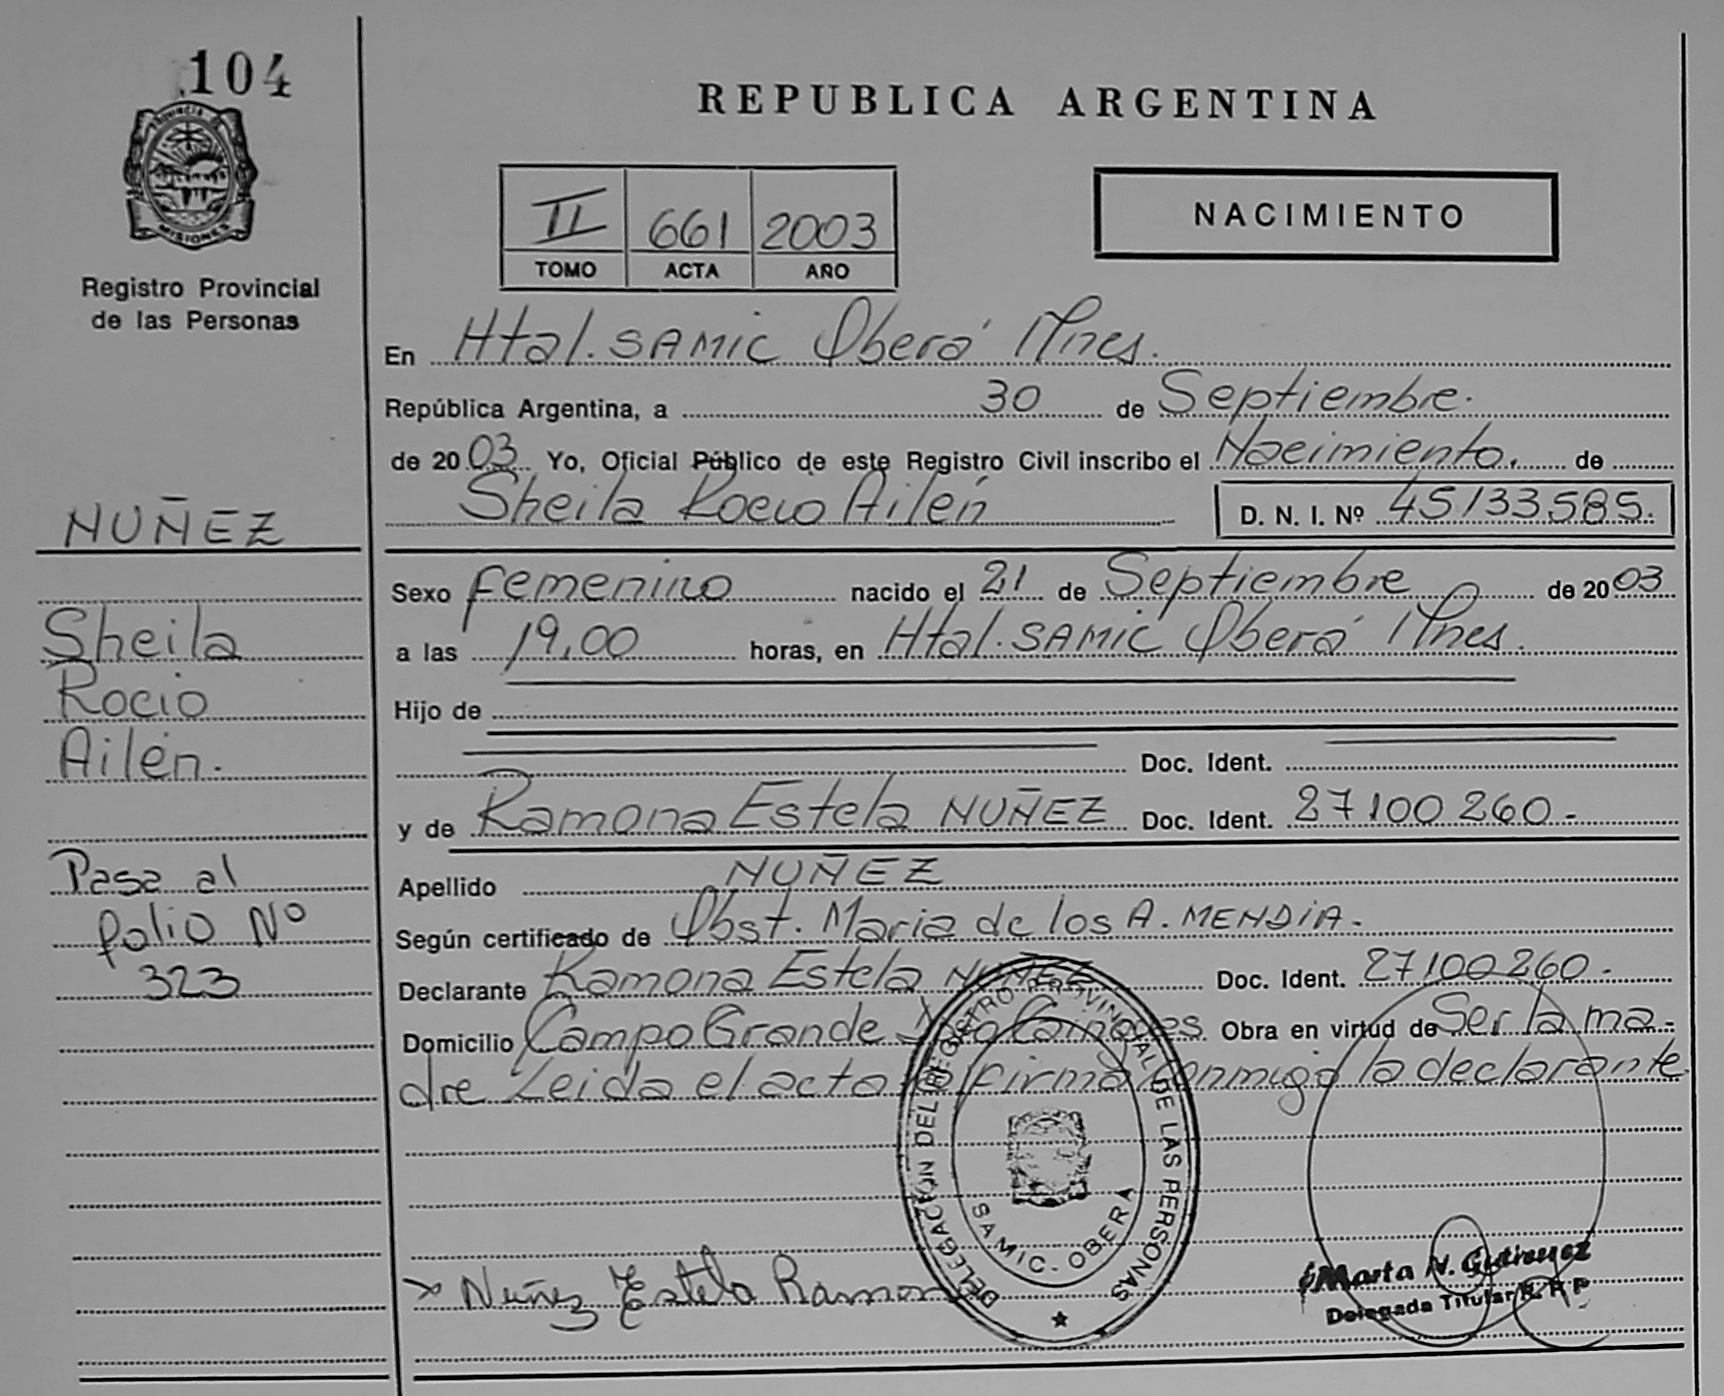 104
PROVINCIA DE
MISIONES
Registro Provincial
de las Personas
NUÑEZ
Sheila
Rocio
Ailén.
Pasa al
folio Nº
323
REPUBLICA ARGENTINA
II 661 2003
TOMO ACTA AÑO
NACIMIENTO
En Htal. SAMIC Oberá Mnes.
República Argentina, a 30 de Septiembre.
de 2003 Yo, Oficial Público de este Registro Civil inscribo el Nacimiento. de
Sheila Rocio Ailén D. N. I. Nº 45133585.
Sexo femenino nacido el 21 de Septiembre de 2003
a las 19,00 horas, en Htal. SAMIC Oberá Mnes.
Hijo de
Doc. Ident.
y de Ramona Estela NUÑEZ Doc. Ident. 27100260.-
Apellido NUÑEZ
Según certificado de Obst. Maria de los A. MENDIA.
Declarante Ramona Estela NUÑEZ Doc. Ident. 27100260.
Domicilio Campo Grande Obra en virtud de Ser la ma-
dre Leida el acta la firma conmigo la declarante
DELEGACIÓN DEL REGISTRO PROVINCIAL DE LAS PERSONAS
SAMIC - OBERA
x Nuñez Estela Ramona
Marta N. Gutierrez
Delegada Titular R. P. P